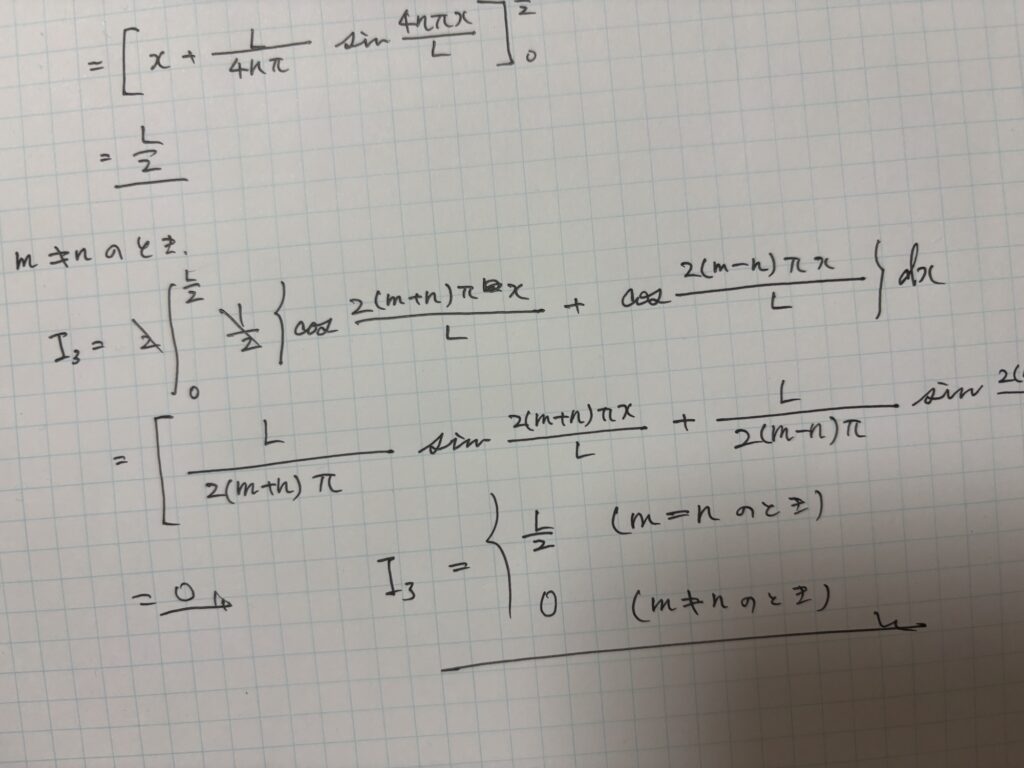 = [ x + L/4nπ sin 4nπx/L ]₀^{/2}
= L/2
m≠nのとき.
I₃ = 2∫₀^{L/2} 1/2 { cos 2(m+n)πx/L + cos 2(m-n)πx/L } dx
= [ L/2(m+n)π sin 2(m+n)πx/L + L/2(m-n)π sin 2(
= 0
I₃ = { L/2 (m=nのとき)
0 (m≠nのとき)